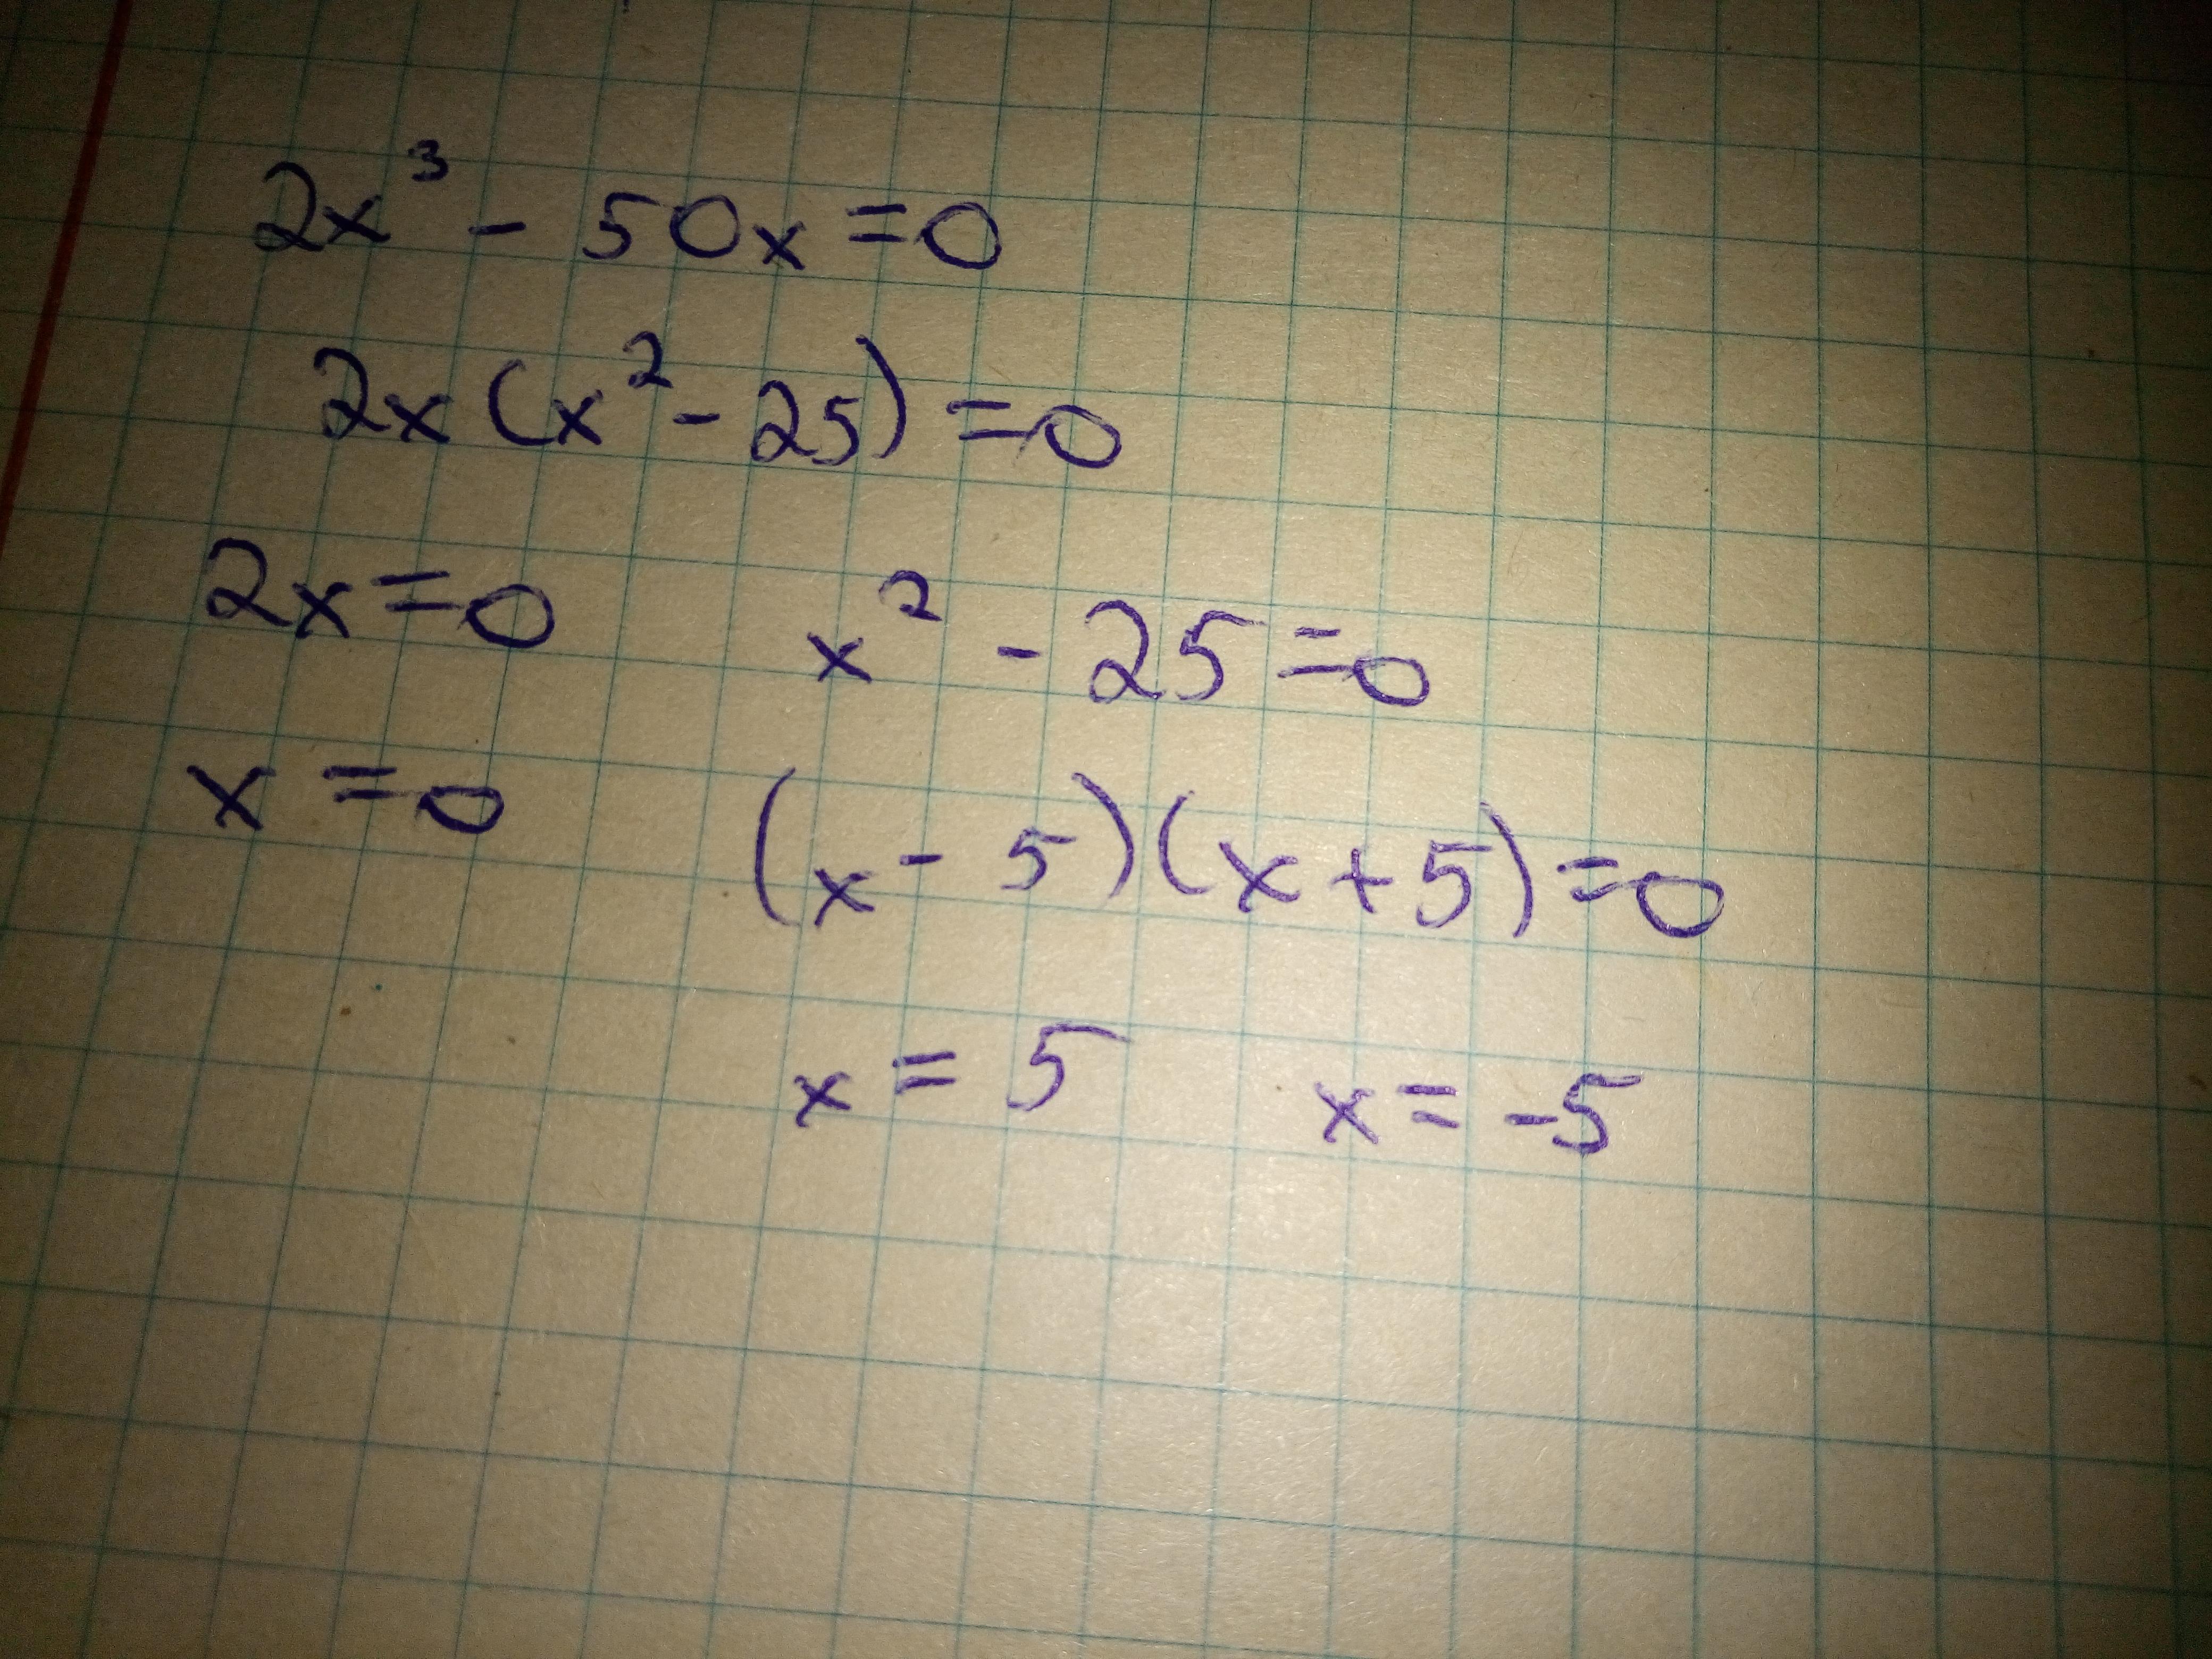 2x³ - 50x = 0
2x (x² - 25) = 0
2x = 0 x² - 25 = 0
x = 0 (x - 5) (x + 5) = 0
x = 5 x = -5